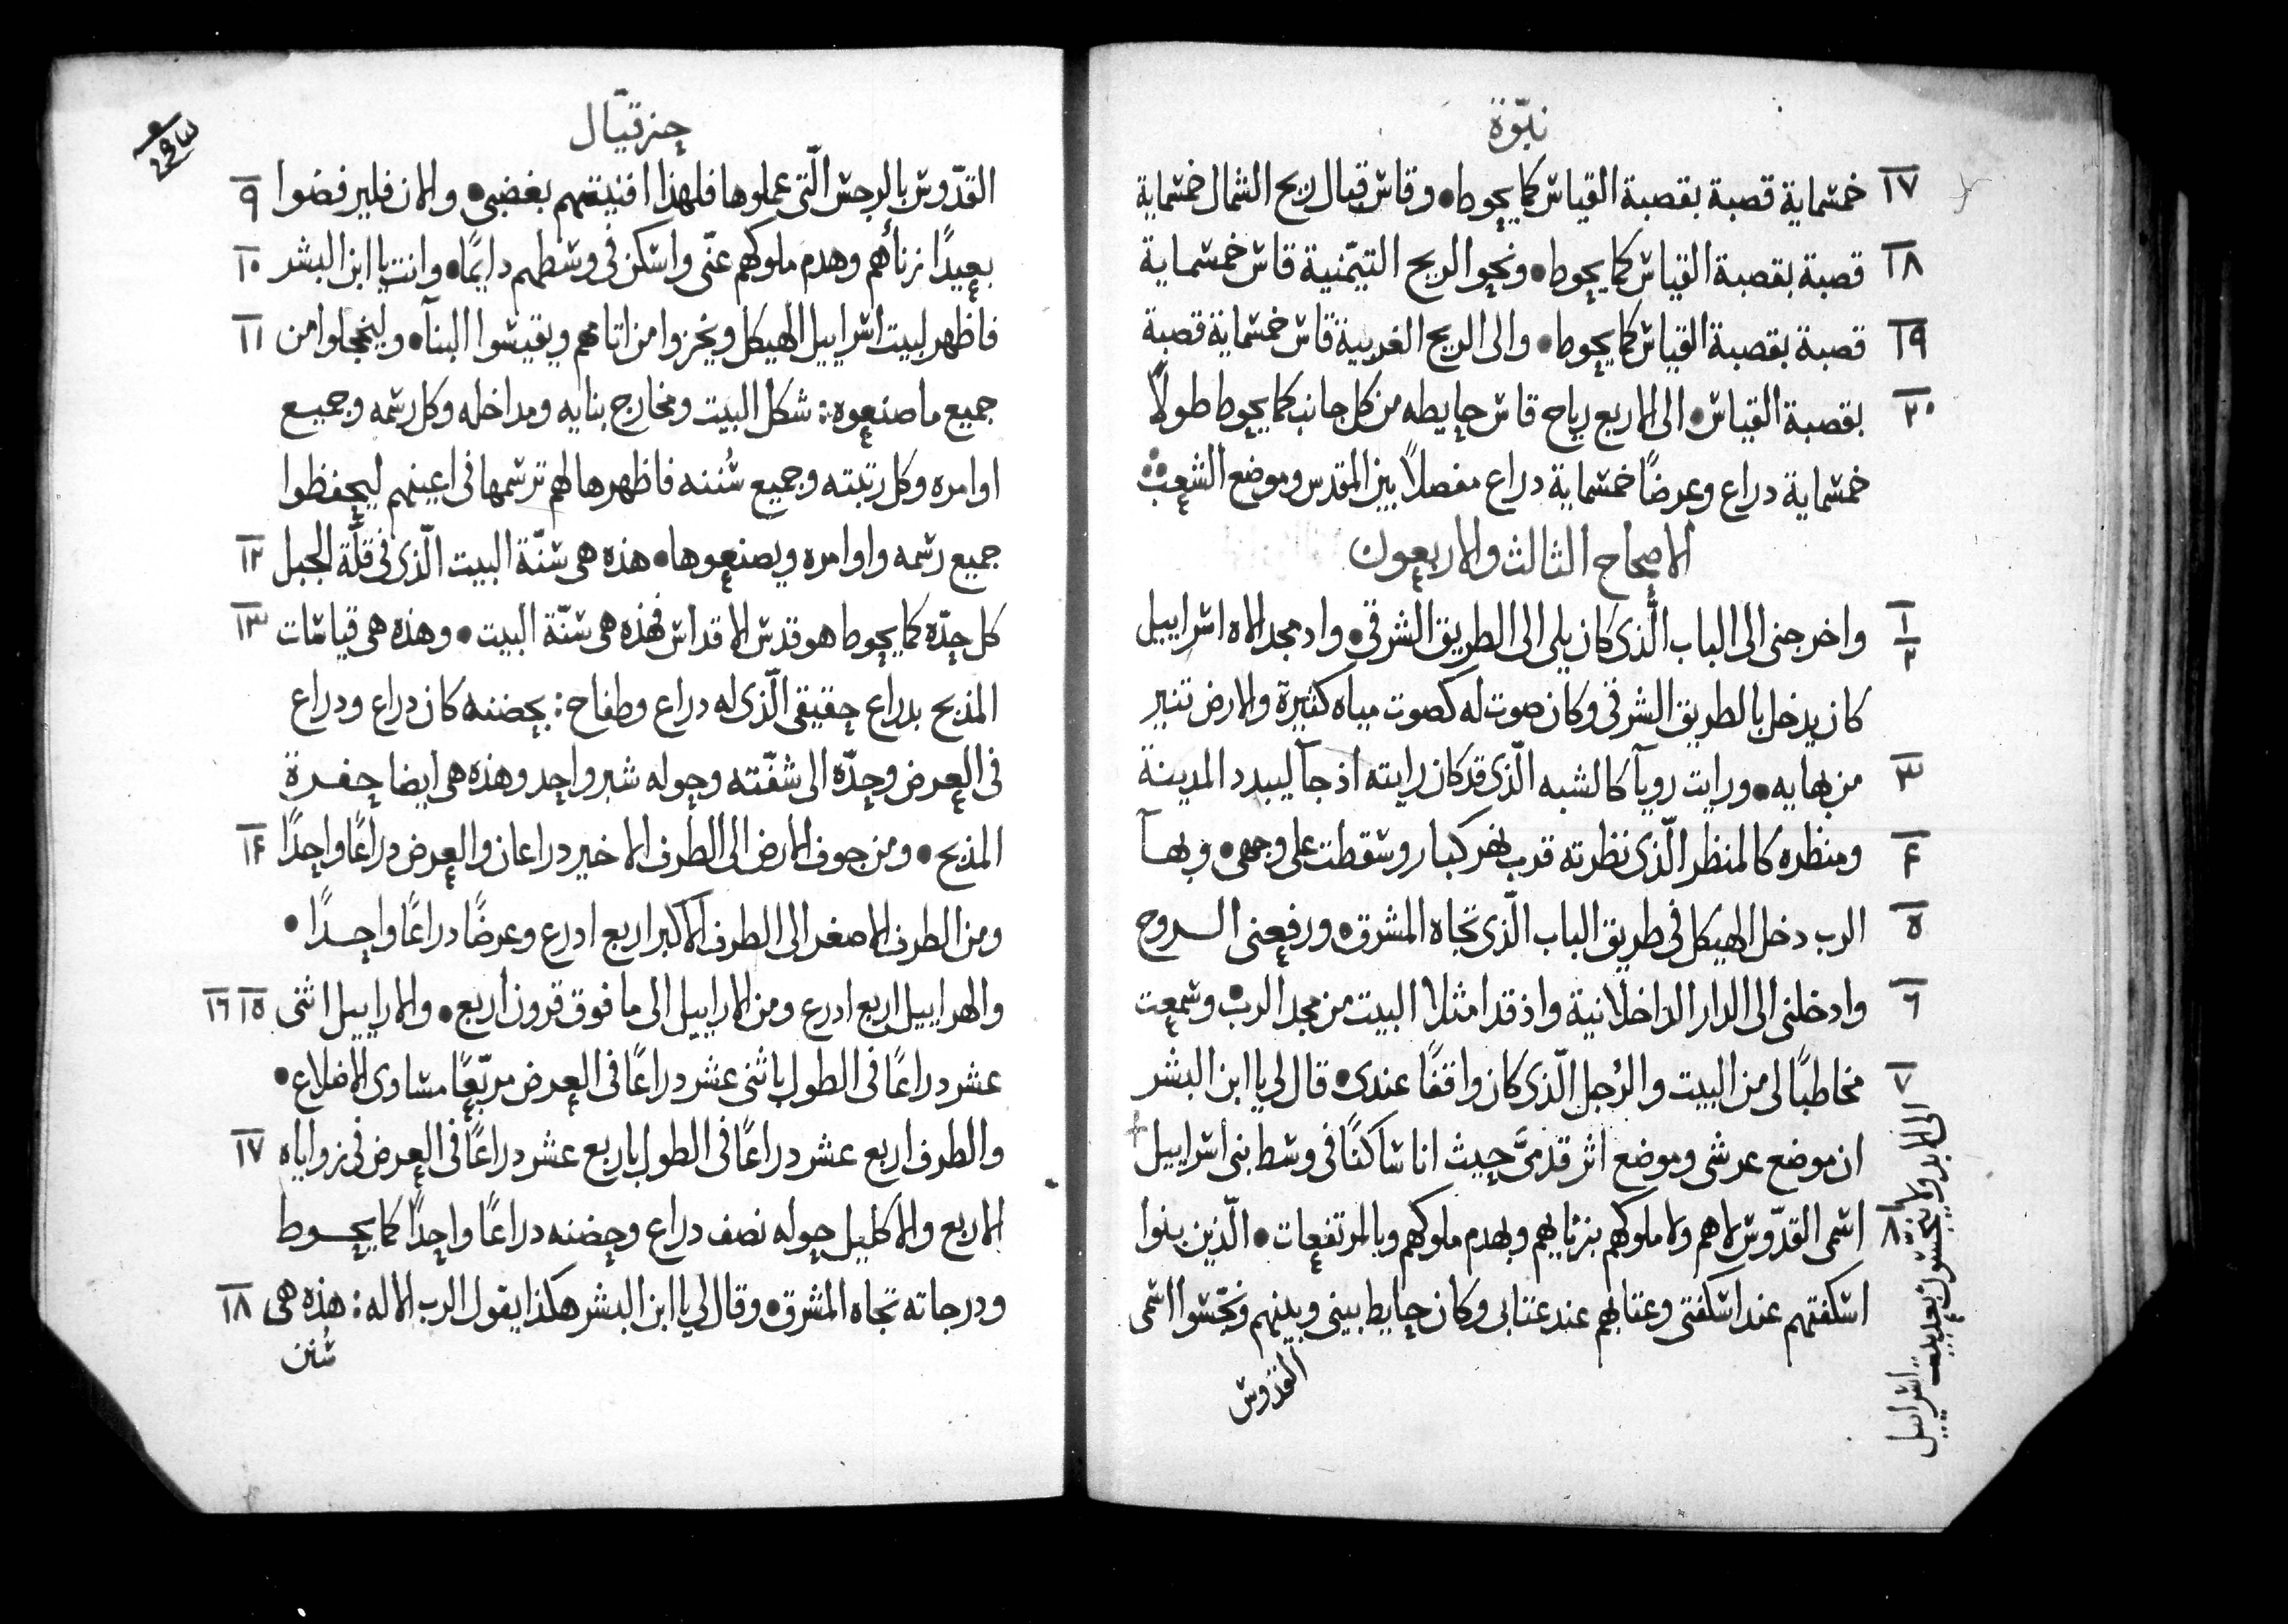 نبوّة
١٧ خمسماية قصبة بقصبة القياس كما يحوط • وقاس قبال ريح الشمال خمسماية
١٨ قصبة بقصبة القياس كما يحوط • ونحو الريح التيّمنية قاس خمسماية
١٩ قصبة بقصبة القياس كما يحوط • والى الريح الغربية قاس خمسماية قصبة
٢٠ بقصبة القياس • الى الاربع رياح قاس حايطه من كل جانب كما يحوط طولاً
خمسماية دراع وعرضًا خمسماية دراع مفصلاً بين المقدس وموضع الشعب
الاصحاح الثالث والاربعون
١ ٢ واخرجنى الى الباب الّذى كان يلى الى الطريق الشرقى • واد مجد الاه اسراييل
كان يدخل بالطريق الشرقى وكان صوت له كصوت مياه كثيرة والارض تنير
٣ من بهايه • ورايت رويآ كالشبه الّذى قد كان رايته اذ جآ ليبدد المدينة
٤ ومنظره كالمنظر الّذى نظرته قرب نهر كبار وسقطت على وجهى • وبهآ
٥ الرب دخل الهيكل فى طريق الباب الّذى تجاه المشرق • ورفعنى الروح
٦ وادخلنى الى الدار الداخلانية واذ قد امتلا البيت من مجد الرب • وسمعت
٧ مخاطبًا لى من البيت والرُجل الّذى كان واقفًا عندى • قال لي يا ابن البشر
ان موضع عرشى وموضع اثر قدمىَّ حيث انا ساكنًا فى وسط بنى اسراييل
الى الابد ولا ينجسون بعد بيت اسراييل
٨ اسمى القدّوس لا هم ولا ملوكهم بزناييهم وبهدم ملوكهم وبالمرتفعات • الّذين بنوا
اسكفتهم عند اسكفتى وعتابهم عند عتابى وكان حايط بينى وبينهم ونجّسوا اسمى
القدّوس
حزقيّال
القدّوس بالرجس الّتى عملوها فلهذا افنيتهم بغضبى • والان فليرفضوا ٩
بعيدًا زناًهم وهدم ملوكهم عنّى واسكن فى وسطهم دايمًا • وانت يا ابن البشر ١٠
فاظهر لبيت اسراييل الهيكل ويخزوا من اتامهم ويقيسوا البنآ • وليخجلوا من ١١
جميع ما صنعوه: شكل البيت ومخارج بنايه ومداخله وكل رسمه وجميع
اوامره وكل رتبته وجميع سُننه فاظهرها لهم ترسمها فى اعينهم ليحفظوا
جميع رسمه واوامره ويصنعوها • هذه هى سُنّة البيت الّذى فى قلّة الجبل ١٢
كل حدّه كما يحوط هو قدس الاقداس فهذه هى سنّة البيت • وهذه هى قياسات ١٣
المذبح بدراع حقيقى الّذى له دراع وطفاح: بحضنه كان دراع ودراع
فى العرض وحدّه الى شفّته وحوله شبر واحد وهذه هى ايضا حفرة
المذبح • ومن جوف الارض الى الطرف الاخير دراعان والعرض دراعًا واحدًا ١٤
ومن الطرف الاصغر الى الطرف الاكبر اربع ادرع وعرضًا دراعًا واحدًا •
والهراييل اربع ادرع ومن الاراييل الى ما فوق قرون اربع • والاراييل اثنى ١٥ ١٦
عشر دراعًا فى الطول باثنى عشر دراعًا فى العرض مربّعًا مساوى الاضلاع •
والطرف اربع عشر دراعًا فى الطول باربع عشر دراعًا فى العرض فى زواياه ١٧
الاربع والاكليل حوله نصف دراع وحضنه دراعًا واحدًا كما يحوط
ودرجاته تجاه المشرق • وقال لي يا ابن البشر هكذا يقول الرب الاله: هذه هى ١٨
سُنن